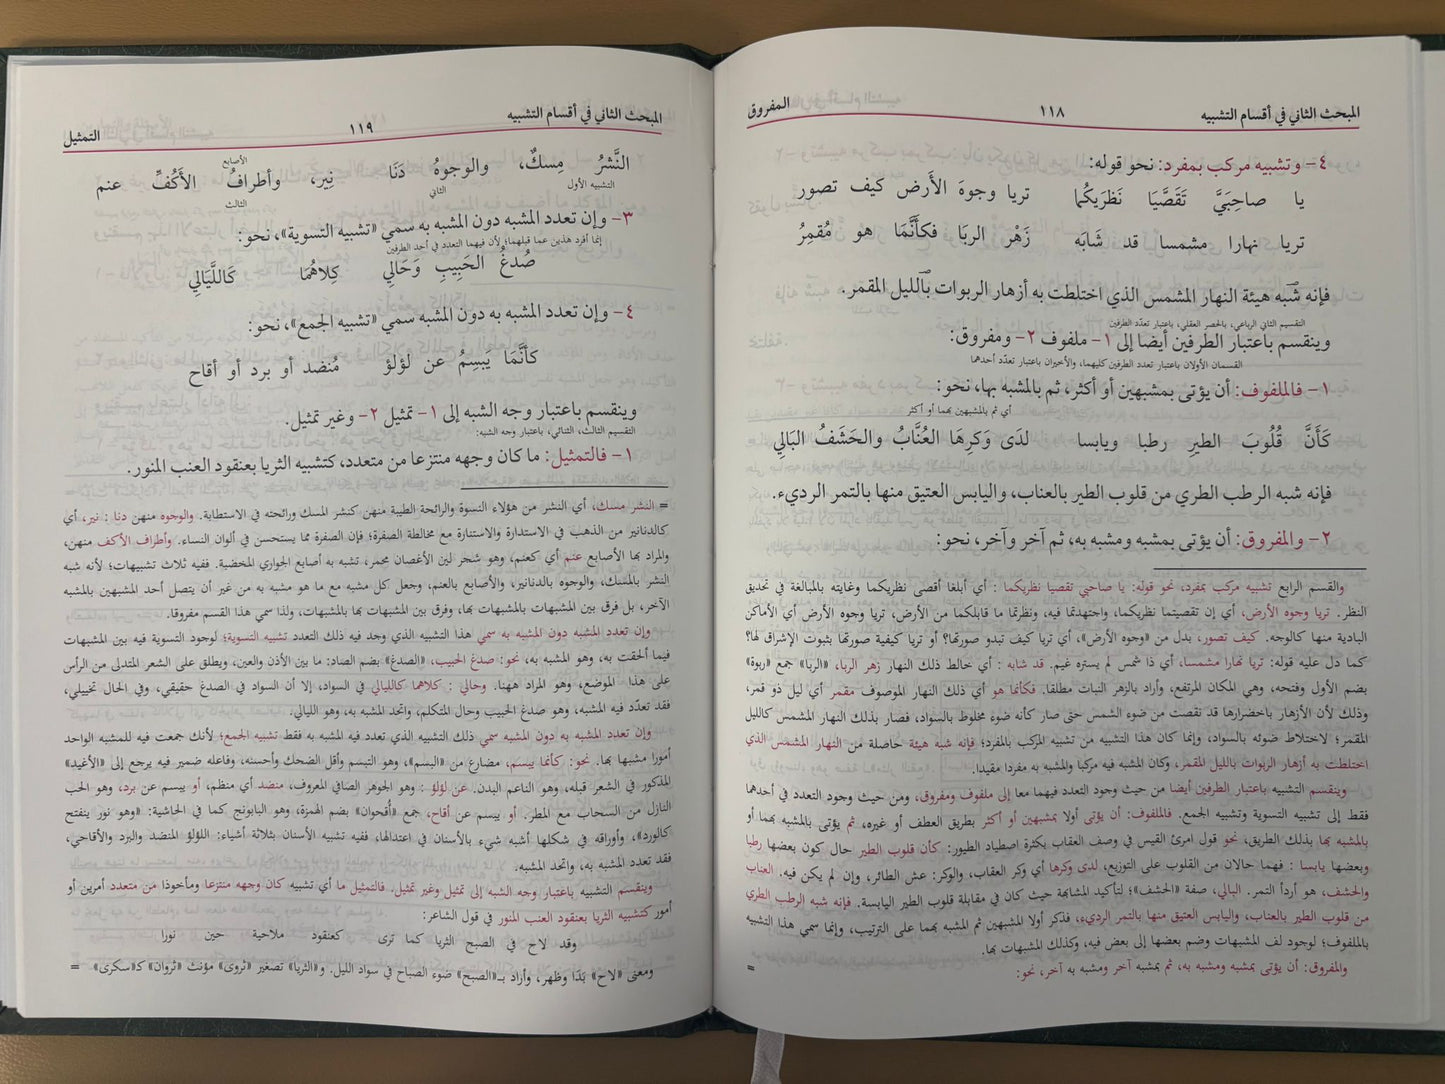 المبحث الثاني في أقسام التشبيه ١١٨ المفروق
٤- وتشبيه مركب بمفرد: نحو قوله:
يا صاحِبَيَّ تَقَصَّيَا نَظَرَيكُما تريا وجوهَ الأَرض كيف تصور
تريا نهارا مشمسا قد شَابَه زَهْر الربَا فكأَنَّمَا هو مُقمِرُ
فإنه شبه هيئة النهار المشمس الذي اختلطت به أزهار الربوات بالليل المقمر.
التقسيم الثاني الرباعي، بالحصر العقلي، باعتبار تعدّد الطرفين
وينقسم باعتبار الطرفين أيضا إلى ١- ملفوف ٢- ومفروق:
القسمان الأولان باعتبار تعدد الطرفين كليهما، والأخيران باعتبار تعدد أحدهما
١- فالملفوف: أن يؤتى بمشبهين أو أكثر، ثم بالمشبه بها، نحو:
أي ثم بالمشبهين بهما أو أكثر
كَأَنَّ قُلُوبَ الطيرِ رطبا ويابسا لدَى وَكرِهَا العُنَّابُ والحَشَفُ البَالِي
فإنه شبه الرطب الطري من قلوب الطير بالعناب، واليابس العتيق منها بالتمر الرديء.
٢- والمفروق: أن يؤتى بمشبه ومشبه به، ثم آخر وآخر، نحو:
والقسم الرابع تشبيه مركب بمفرد، نحو قوله: يا صاحبي تقصيا نظريكما : أي أبلغا أقصى نظريكما وغايته بالمبالغة في تحديق
النظر. تريا وجوه الأرض، أي إن تقصيتما نظريكما، واجتهدتما فيه، ونظرتما ما قابلكما من الأرض، تريا وجوه الأرض أي الأماكن
البادية منها كالوجه. كيف تصور، بدل من «وجوه الأرض»، أي تريا كيف تبدو صورتها؟ أو تريا كيفية صورتها بثبوت الإشراق لها؟
كما دل عليه قوله: تريا نهارا مشمسا، أي ذا شمس لم يستره غيم. قد شابه : أي خالط ذلك النهار زهر الربا، «الربا» جمع «ربوة»
بضم الأول وفتحه، وهي المكان المرتفع، وأراد بالزهر النبات مطلقا. فكأنما هو أي ذلك النهار الموصوف مقمر أي ليل ذو قمر،
وذلك لأن الأزهار باخضرارها قد نقصت من ضوء الشمس حتى صار كأنه ضوء مخلوط بالسواد، فصار بذلك النهار المشمس كالليل
المقمر؛ لاختلاط ضوئه بالسواد، وإنما كان هذا التشبيه من تشبيه المركب بالمفرد؛ فإنه شبه هيئة حاصلة من النهار المشمس الذي
اختلطت به أزهار الربوات بالليل المقمر، وكان المشبه فيه مركبا والمشبه به مفردا مقيدا.
وينقسم التشبيه باعتبار الطرفين أيضا من حيث وجود التعدد فيهما معا إلى ملفوف ومفروق، ومن حيث وجود التعدد في أحدهما
فقط إلى تشبيه التسوية وتشبيه الجمع. فالملفوف: أن يؤتى أولا بمشبهين أو أكثر بطريق العطف أو غيره، ثم يؤتى بالمشبه بهما أو
بالمشبه بها بذلك الطريق، نحو قول امرئ القيس في وصف العقاب بكثرة اصطياد الطيور: كأن قلوب الطير حال كون بعضها رطبا
وبعضها يابسا : فهما حالان من القلوب على التوزيع، لدى وكرها أي وكر العقاب، والوكر: عش الطائر، وإن لم يكن فيه. العناب
والحشف، هو أردأ التمر. البالي، صفة «الحشف»؛ لتأكيد المشابهة حيث كان في مقابلة قلوب الطير اليابسة. فإنه شبه الرطب الطري
من قلوب الطير بالعناب، واليابس العتيق منها بالتمر الرديء، فذكر أولا المشبهين ثم المشبه بهما على الترتيب، وإنما سمي هذا التشبيه
بالملفوف؛ لوجود لف المشبهات وضم بعضها إلى بعض فيه، وكذلك المشبهات بها.
والمفروق: أن يؤتى بمشبه ومشبه به، ثم بمشبه آخر ومشبه به آخر، نحو: =
المبحث الثاني في أقسام التشبيه ١١٩ التمثيل
الأصابع
النَّشرُ مِسكٌ، والوجوهُ دَنَا نِير، وأطرافُ الأَكُفِّ عنم
التشبيه الأول الثاني الثالث
٣- وإن تعدد المشبه دون المشبه به سمي «تشبيه التسوية»، نحو:
إنما أفرد هذين عما قبلهما؛ لأن فيهما التعدد في أحد الطرفين
صُدغُ الحَبِيبِ وَحَالِي كِلاهُمَا كَاللَّيَالِي
٤- وإن تعدد المشبه به دون المشبه سمي «تشبيه الجمع»، نحو:
كأَنَّمَا يَبسِمُ عن لؤلؤ مُنْضد أو برد أو أقاح
وينقسم باعتبار وجه الشبه إلى ١- تمثيل ٢- وغير تمثيل.
التقسيم الثالث، الثنائي، باعتبار وجه الشبه:
١- فالتمثيل: ما كان وجهه منتزعا من متعدد، كتشبيه الثريا بعنقود العنب المنور.
= النشر مسك، أي النشر من هؤلاء النسوة والرائحة الطيبة منهن كنشر المسك ورائحته في الاستطابة. والوجوه منهن دنا : نير، أي
كالدنانير من الذهب في الاستدارة والاستنارة مع مخالطة الصفرة؛ فإن الصفرة مما يستحسن في ألوان النساء. وأطراف الأكف منهن،
والمراد بها الأصابع عنم أي كعنم، وهو شجر لين الأغصان محمر، تشبه به أصابع الجواري المخضبة. ففيه ثلاث تشبيهات؛ لأنه شبه
النشر بالمسك، والوجوه بالدنانير، والأصابع بالعنم، وجعل كل مشبه مع ما هو مشبه به من غير أن يتصل أحد المشبهين بالمشبه
الآخر، بل فرق بين المشبهات بالمشبهات بها، وفرق بين المشبهات بها بالمشبهات، ولذا سمي هذا القسم مفروقا.
وإن تعدد المشبه دون المشبه به سمي هذا التشبيه الذي وجد فيه ذلك التعدد تشبيه التسوية؛ لوجود التسوية فيه بين المشبهات
فيما ألحقت به، وهو المشبه به، نحو: صدغ الحبيب، «الصدغ» بضم الصاد: ما بين الأذن والعين، ويطلق على الشعر المتدلى من الرأس
على هذا الموضع، وهو المراد ههنا. وحالي : كلاهما كالليالي في السواد، إلا أن السواد في الصدغ حقيقي، وفي الحال تخييلي،
فقد تعدّد فيه المشبه، وهو صدغ الحبيب وحال المتكلم، واتحد المشبه به، وهو الليالي.
وإن تعدد المشبه به دون المشبه سمي ذلك التشبيه الذي تعدد فيه المشبه به فقط تشبيه الجمع؛ لأنك جمعت فيه للمشبه الواحد
أمورا مشبها بها. نحو: كأنما يبسم، مضارع من «البسم»، وهو التبسم وأقل الضحك وأحسنه، وفاعله ضمير فيه يرجع إلى «الأغيد»
المذكور في الشعر قبله، وهو الناعم البدن. عن لؤلؤ : وهو الجوهر الصافي المعروف، منضد أي منظم، أو يبسم عن برد، وهو الحب
النازل من السحاب مع المطر. أو يبسم عن أقاح، جمع «أُقحوان» بضم الهمزة، وهو البابونج كما في الحاشية: «وهو نور ينفتح
كالورد»، وأوراقه في شكلها أشبه شيء بالأسنان في اعتدالها، ففيه تشبيه الأسنان بثلاثة أشياء: اللؤلؤ المنضد والبرد والأقاحي،
فقد تعدد المشبه به، واتحد المشبه.
وينقسم التشبيه باعتبار وجه الشبه إلى تمثيل وغير تمثيل. فالتمثيل ما أي تشبيه كان وجهه منتزعا ومأخوذا من متعدد أمرين أو
أمور كتشبيه الثريا بعنقود العنب المنور في قول الشاعر:
وقد لاح في الصبح الثريا كما ترى كعنقود ملاحية حين نورا
ومعنى «لاح» بَدَا وظهر، وأراد بـ«الصبح» ضوء الصباح في سواد الليل. و«الثريا» تصغير «ثروى» مؤنث «ثروان» كـ«سكرى» =